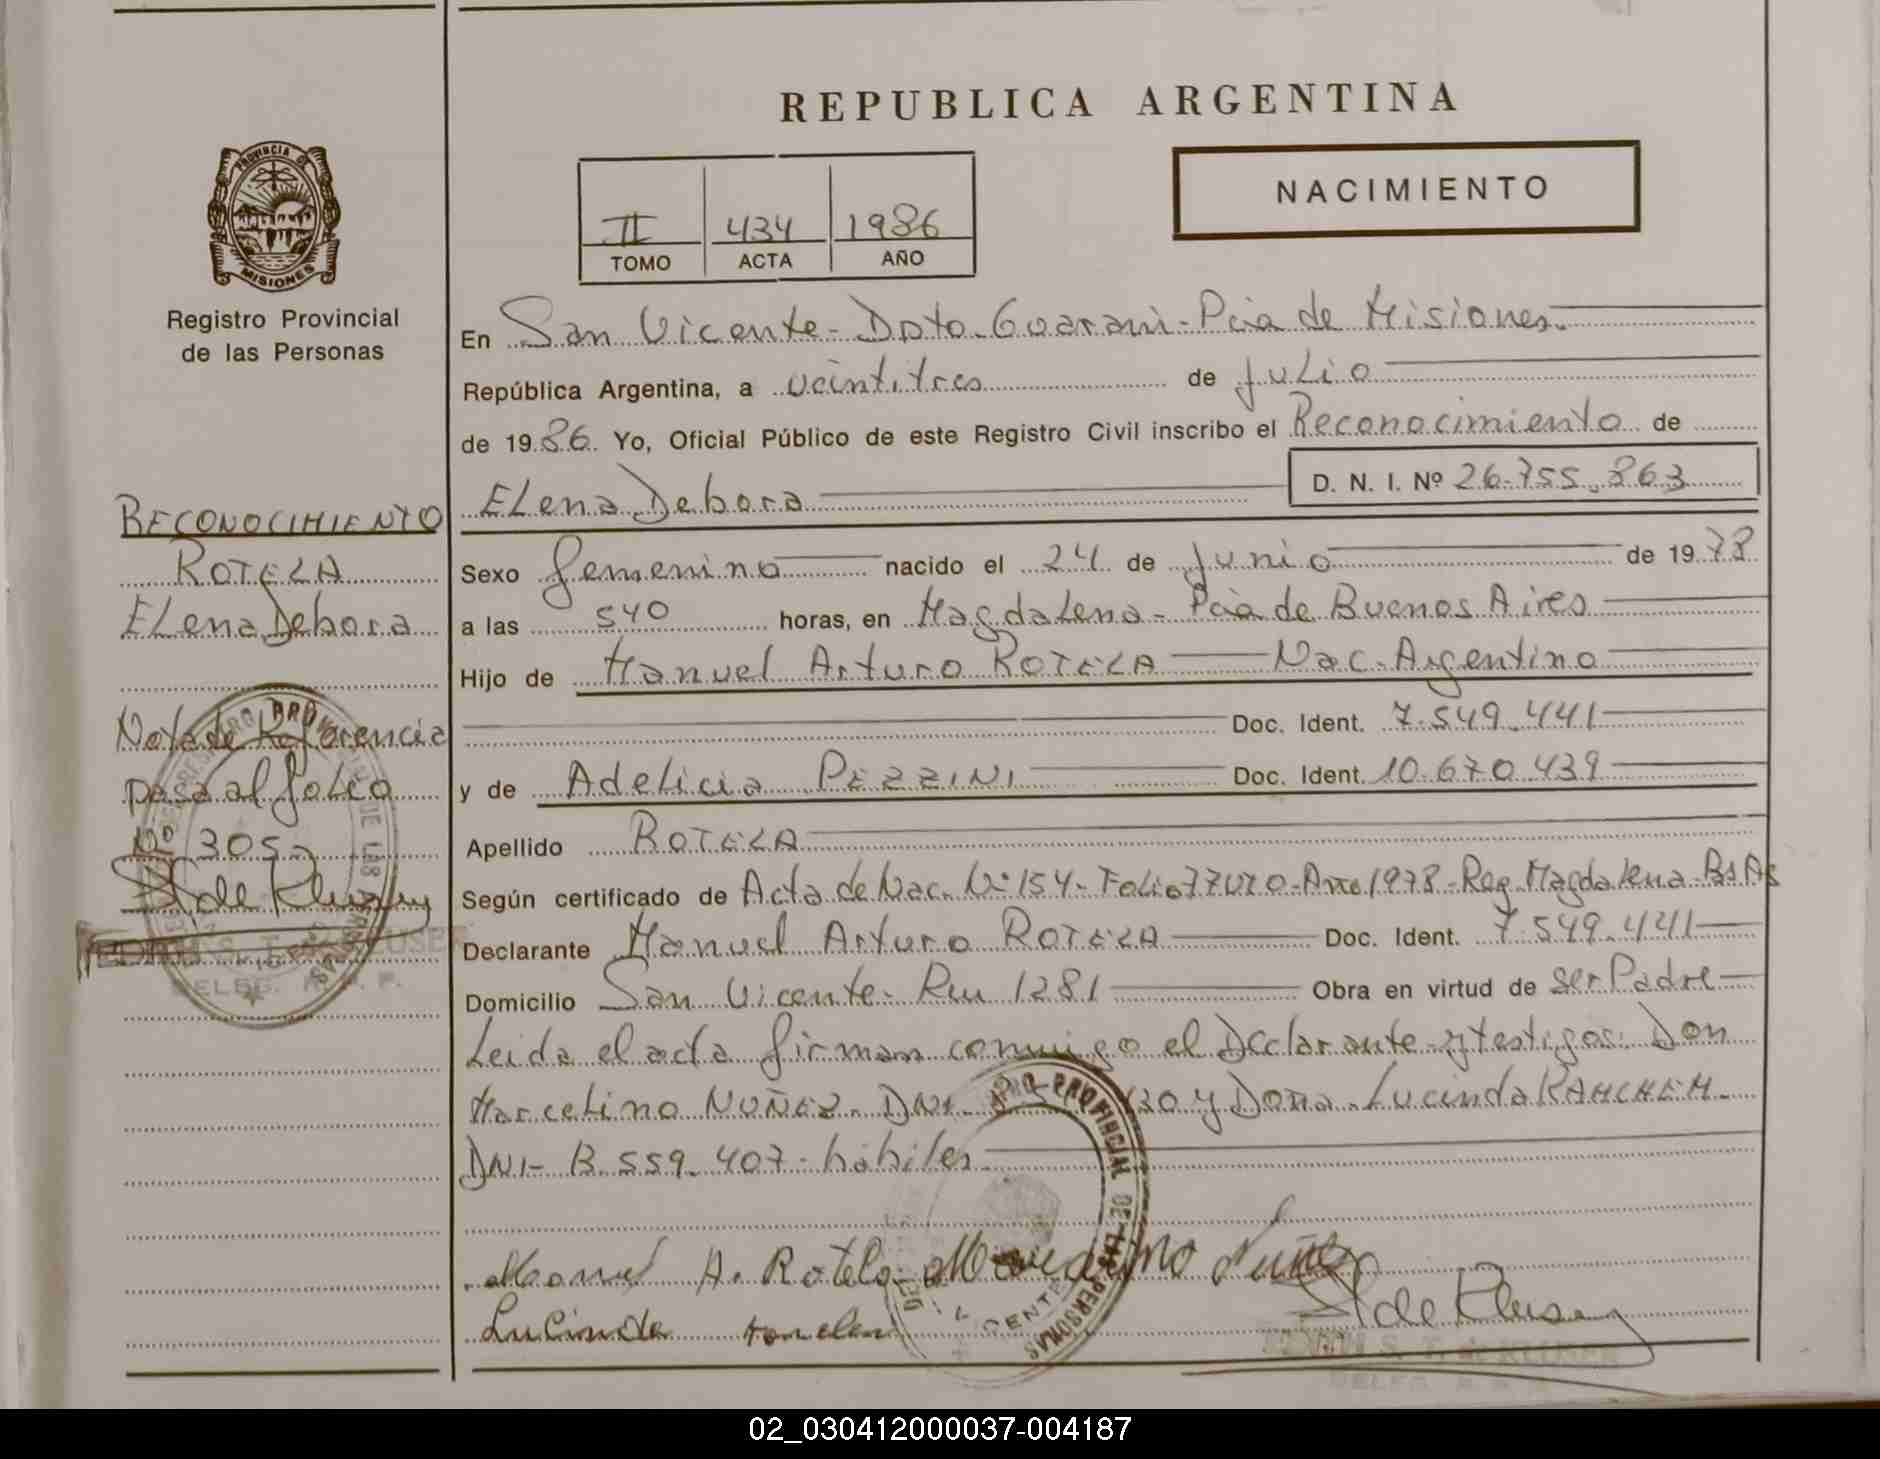 REPUBLICA ARGENTINA
NACIMIENTO
II 434 1986
TOMO ACTA AÑO
PROVINCIA DE MISIONES
Registro Provincial
de las Personas
En San Vicente - Dpto. Guarani - Pcia de Misiones.
República Argentina, a veintitres de Julio
de 1986. Yo, Oficial Público de este Registro Civil inscribo el Reconocimiento de
Elena Debora D. N. I. Nº 26.755.863
Sexo femenino nacido el 24 de Junio de 1978
a las 540 horas, en Magdalena - Pcia de Buenos Aires
Hijo de Manuel Arturo ROTELA Nac. Argentino
Doc. Ident. 7.549.441
y de Adelicia PEZZINI Doc. Ident. 10.670.439
Apellido ROTELA
Según certificado de Acta de Nac. Nº 154 - Folio 77 - Año 1978 - Reg. Magdalena - Bs As
Declarante Manuel Arturo ROTELA Doc. Ident. 7.549.441
Domicilio San Vicente - Ru 1281 Obra en virtud de ser Padre
Leida el acta firman conmigo el Declarante y testigos: Don
Marcelino NUÑEZ. DNI. y Doña Lucinda
DNI - 3.559.407 - hábiles
Manuel A. Rotela
RECONOCIMIENTO
ROTELA
Elena Debora
Nota de Referencia
pasa al folio
Nº 305
REGISTRO PROVINCIAL DE LAS PERSONAS
02_030412000037-004187